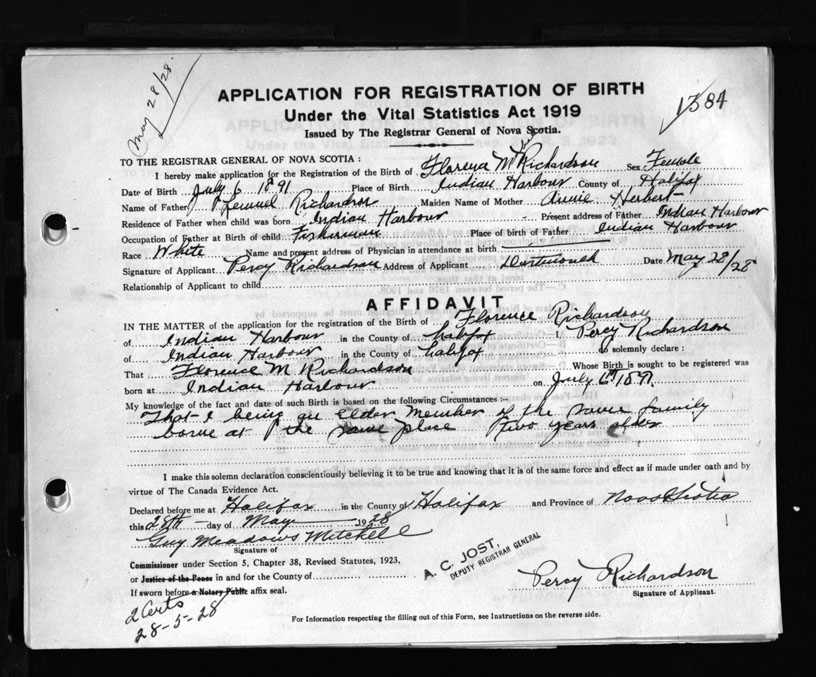 May 28/28.
APPLICATION FOR REGISTRATION OF BIRTH
1384
Under the Vital Statistics Act 1919
Issued by The Registrar General of Nova Scotia.
TO THE REGISTRAR GENERAL OF NOVA SCOTIA:
I hereby make application for the Registration of the Birth of Florence M Richardson Sex Female
Date of Birth July 6 1891 Place of Birth Indian Harbour County of Halifax
Name of Father Lemuel Richardson Maiden Name of Mother Annie Herbert
Residence of Father when child was born Indian Harbour Present address of Father Indian Harbour
Occupation of Father at Birth of child Fisherman Place of birth of Father Indian Harbour
Race White Name and present address of Physician in attendance at birth
Signature of Applicant Percy Richardson Address of Applicant Dartmouth Date May 28/28
Relationship of Applicant to child
AFFIDAVIT
IN THE MATTER of the application for the registration of the Birth of Florence Richardson
of Indian Harbour in the County of Halifax I, Percy Richardson
of Indian Harbour in the County of Halifax do solemnly declare :
That Florence M Richardson Whose Birth is sought to be registered was
born at Indian Harbour on July 6th 1891.
My knowledge of the fact and date of such Birth is based on the following Circumstances :—
That I being an elder member of the same family
borne at the same place two years older
I make this solemn declaration conscientiously believing it to be true and knowing that it is of the same force and effect as if made under oath and by
virtue of The Canada Evidence Act.
Declared before me at Halifax in the County of Halifax and Province of Nova Scotia
this 28th day of May 1928
Guy Meadows Mitchell
Signature of
Commissioner under Section 5, Chapter 38, Revised Statutes, 1923,
or Justice of the Peace in and for the County of
If sworn before a Notary Public affix seal.
A. C. JOST,
DEPUTY REGISTRAR GENERAL
Percy Richardson
Signature of Applicant.
2 Certs
28-5-28
For Information respecting the filling out of this Form, see Instructions on the reverse side.